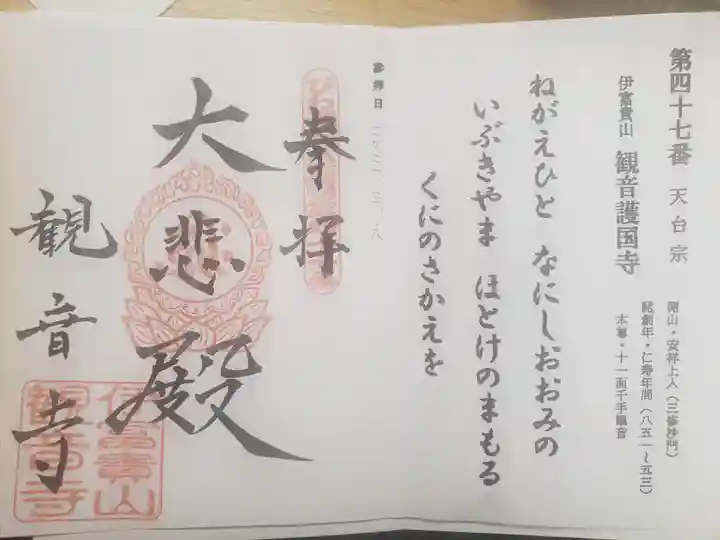 第四十七番 天台宗
伊富貴山 観音護国寺
開山・安祥上人（三修沙門）
開創年・仁寿年間（八五一〜五三）
本尊・十一面千手観音
ねがえひと なにしおおみの
いぶきやま ほとけのまもる
くにのさかえを
参拝日
奉拝
大悲殿
観音寺
伊富貴山
観音寺